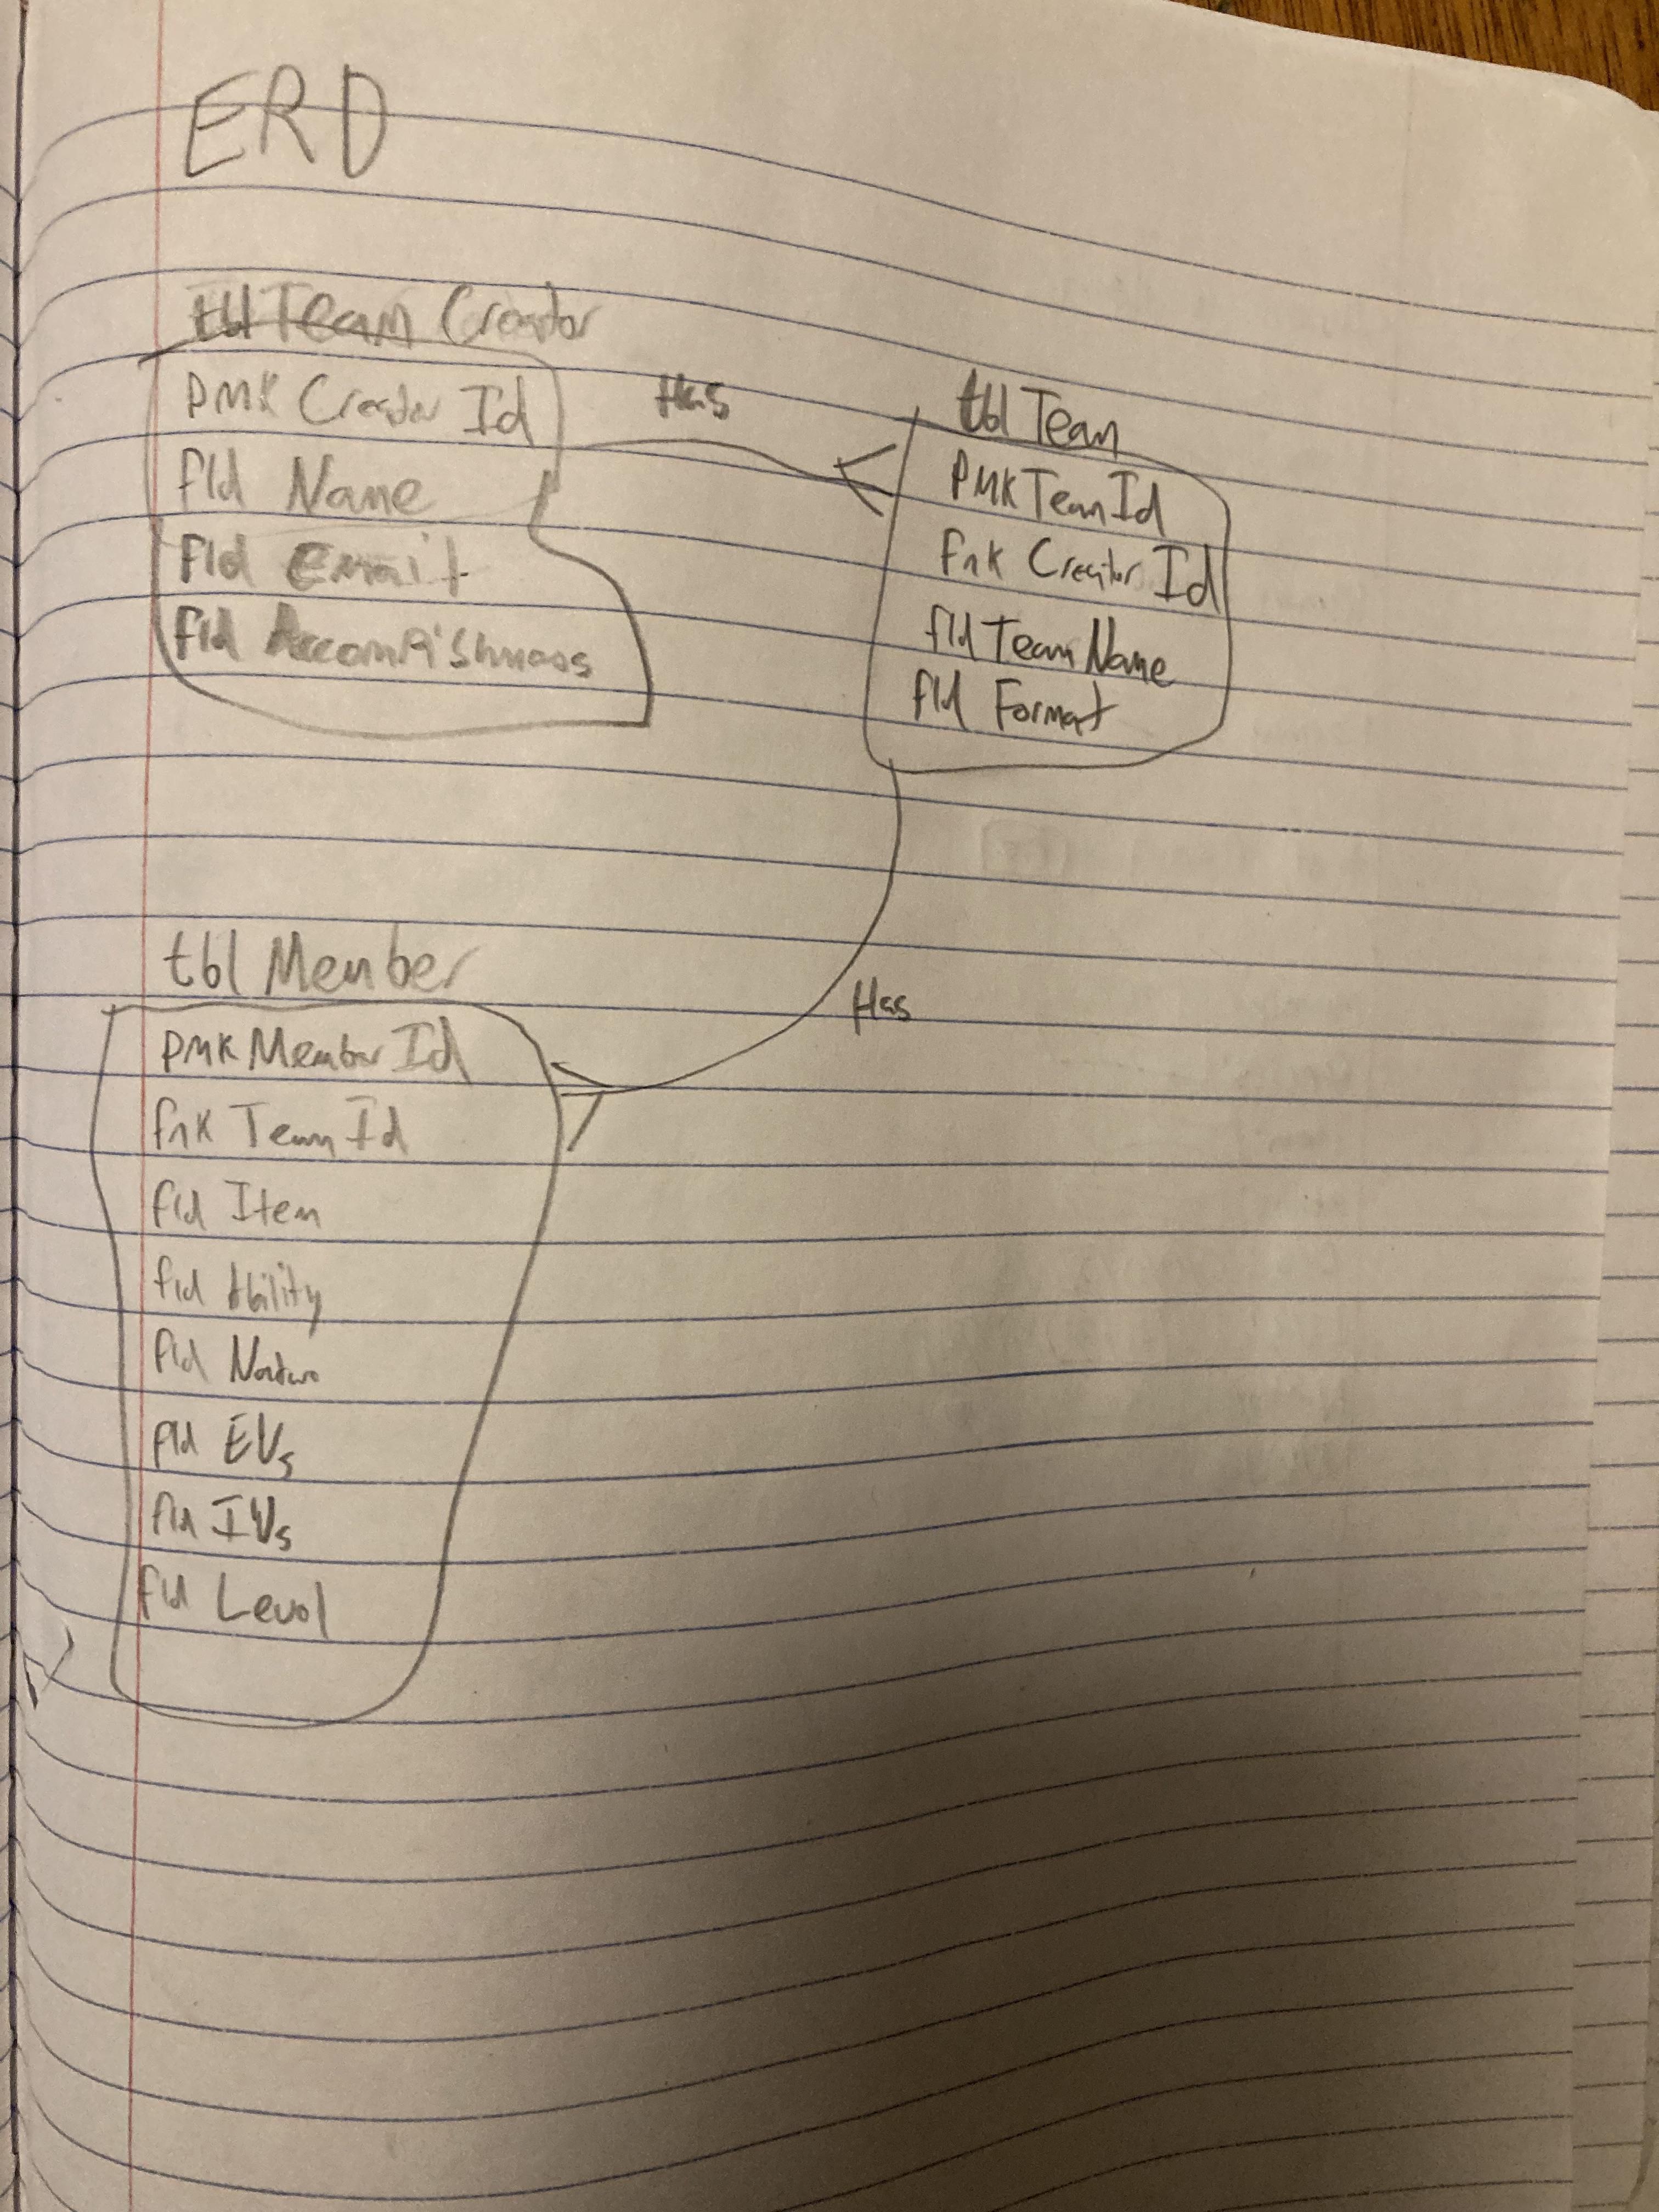 ERD
tblTeam Creator
pmk Creator Id
fld Name
fld Email
fld
Has
tbl Team
pmkTeamId
fnk Creator Id
fld Team Name
fld Format
Has
tbl Member
pmk Member Id
fnk Team Id
fld Item
fld Ability
fld Nature
fld EVs
fld IVs
fld Level